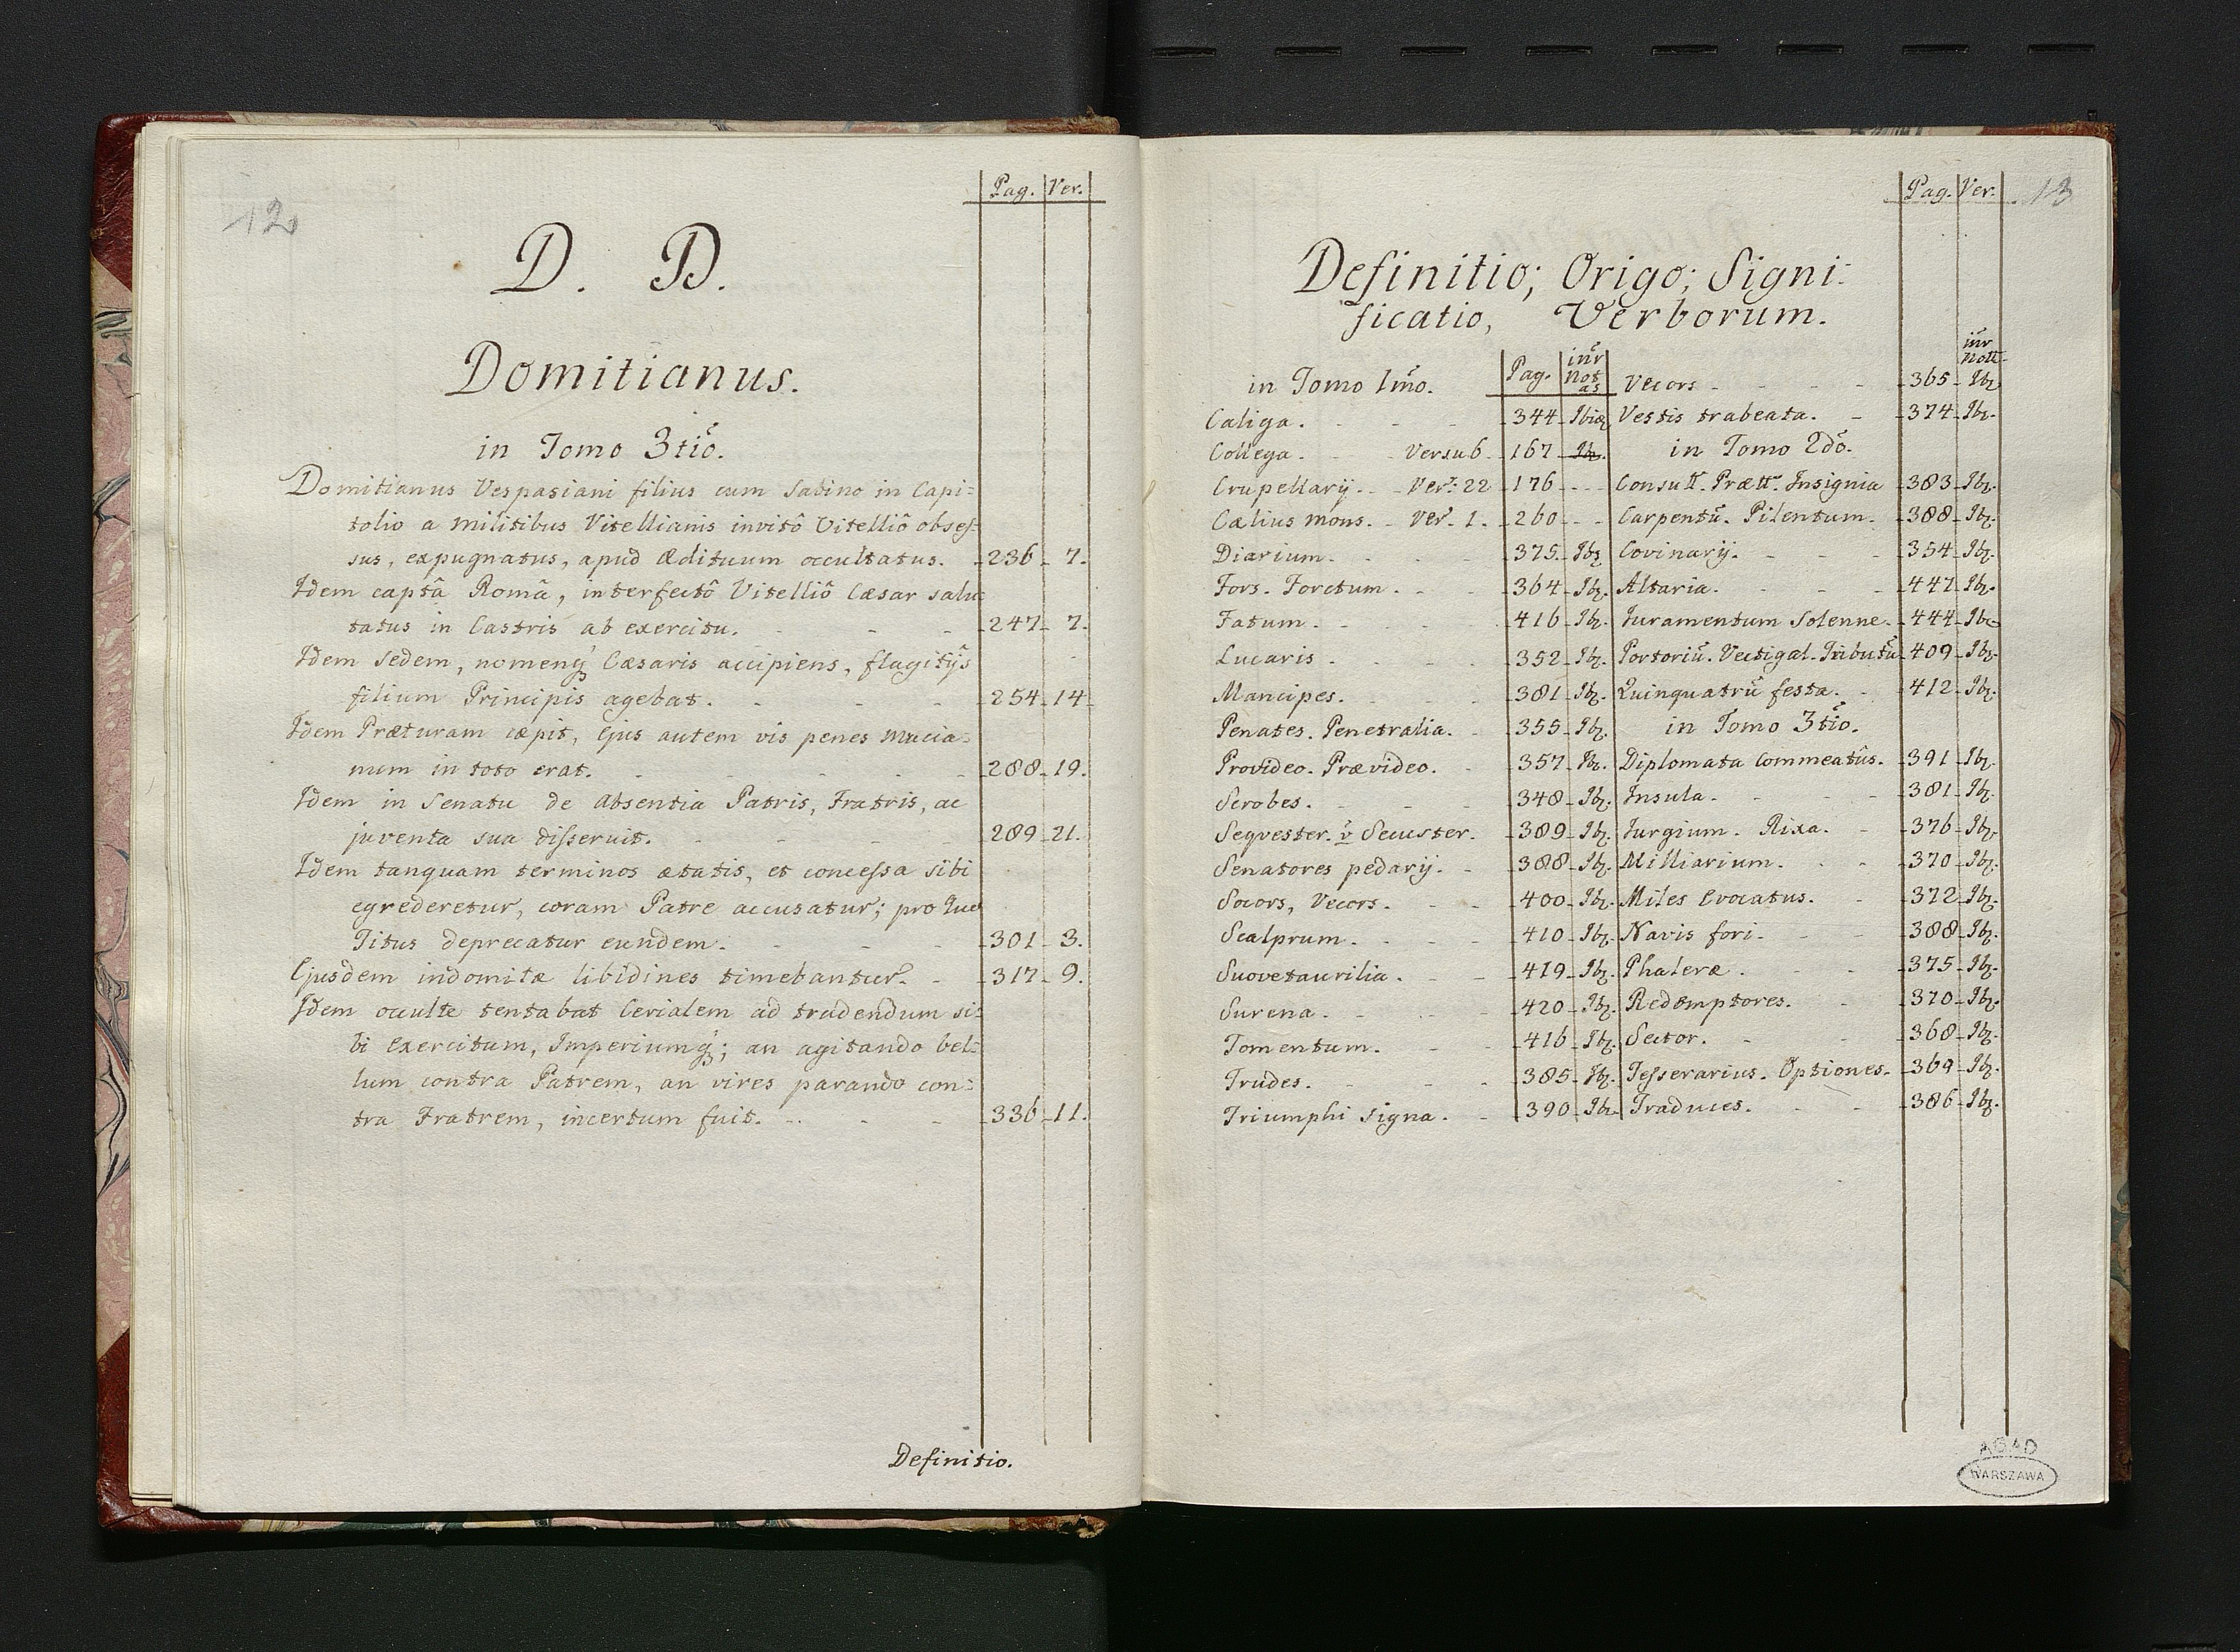 12
Pag. Ver.
D. D.
Domitianus.
in Tomo 3tiõ.
Domitianus Vespasiani filius cum Sabino in Capi=
tolio a militibus Vitellianis invitô Vitelliô obses=
sus, expugnatus, apud Ædituum occultatus. 236 7.
Idem captâ Româ, interfectô Vitelliô Cæsar salu=
tatus in Castris ab exercitu. 247 7.
Idem sedem, nomenq; Cæsaris accipiens, flagitijs
filium Principis agebat. 254 14
Idem Præturam cæpit, Ejus autem vis penes Mucia=
num in toto erat. 288 19.
Idem in Senatu de absentia Patris, Fratris, ac
juventa sua disseruit. 289 21.
Idem tanquam terminos ætatis, et concessa sibi
egrederetur, coram Patre accusatur; pro quo
Titus deprecatur eundem. 301 3.
Ejusdem indomitæ libidines timebantur. 317 9.
Idem occulte tentabat Cerialem ad tradendum si=
bi Exercitum, Imperiumq;; an agitando bel=
lum contra Patrem, an vires parando con=
tra Fratrem, incertum fuit. 336 11.
Definitio.
Pag. Ver. 13
Definitio; Origo; Signi=
ficatio, Verborum.
in Tomo 1mõ. Pag. inr Not as
Caliga. 344 Ibid
Collega. Versu 6 167 Ib.
Crupellarij. Ver. 22 176
Cælius mons. Ver. 1. 260
Diarium. 375 Ib.
Fors. Forctum. 364 Ib.
Fatum. 416 Ib.
Lucaris. 352 Ib.
Mancipes. 381 Ib.
Penates. Penetralia. 355 Ib.
Provideo. Prævideo. 357 Ib.
Scrobes. 348 Ib.
Seqvester. v Secuster. 389 Ib.
Senatores pedarij. 388 Ib.
Socors, Vecors. 400 Ib.
Scalprum. 410 Ib.
Suovetaurilia. 419 Ib.
Surena. 420 Ib.
Tomentum. 416 Ib.
Trudes. 385 Ib.
Triumphi signa. 390 Ib.
inr Nott.
Vecors 365 Ib.
Vestis trabeata. 374 Ib.
in Tomo 2dõ.
Consull. Prætt. Insignia 383 Ib.
Carpentũ. Pilentum. 388 Ib.
Covinarij. 354 Ib.
Altaria. 447 Ib.
Juramentum Solenne. 444 Ib.
Portoriũ. Vectigal. Tributũ 409 Ib.
Quinquatrũ festa. 412 Ib.
in Tomo 3tiõ.
Diplomata Commeatûs. 391 Ib.
Insula. 381 Ib.
Jurgium. Rixa. 376 Ib.
Milliarium. 370 Ib.
Miles Evocatus. 372 Ib.
Navis fori. 388 Ib.
Phaleræ. 375 Ib.
Redemptores. 370 Ib.
Sector. 368 Ib.
Tesserarius. Optiones. 369 Ib.
Traduces. 386 Ib.
AGAD
WARSZAWA